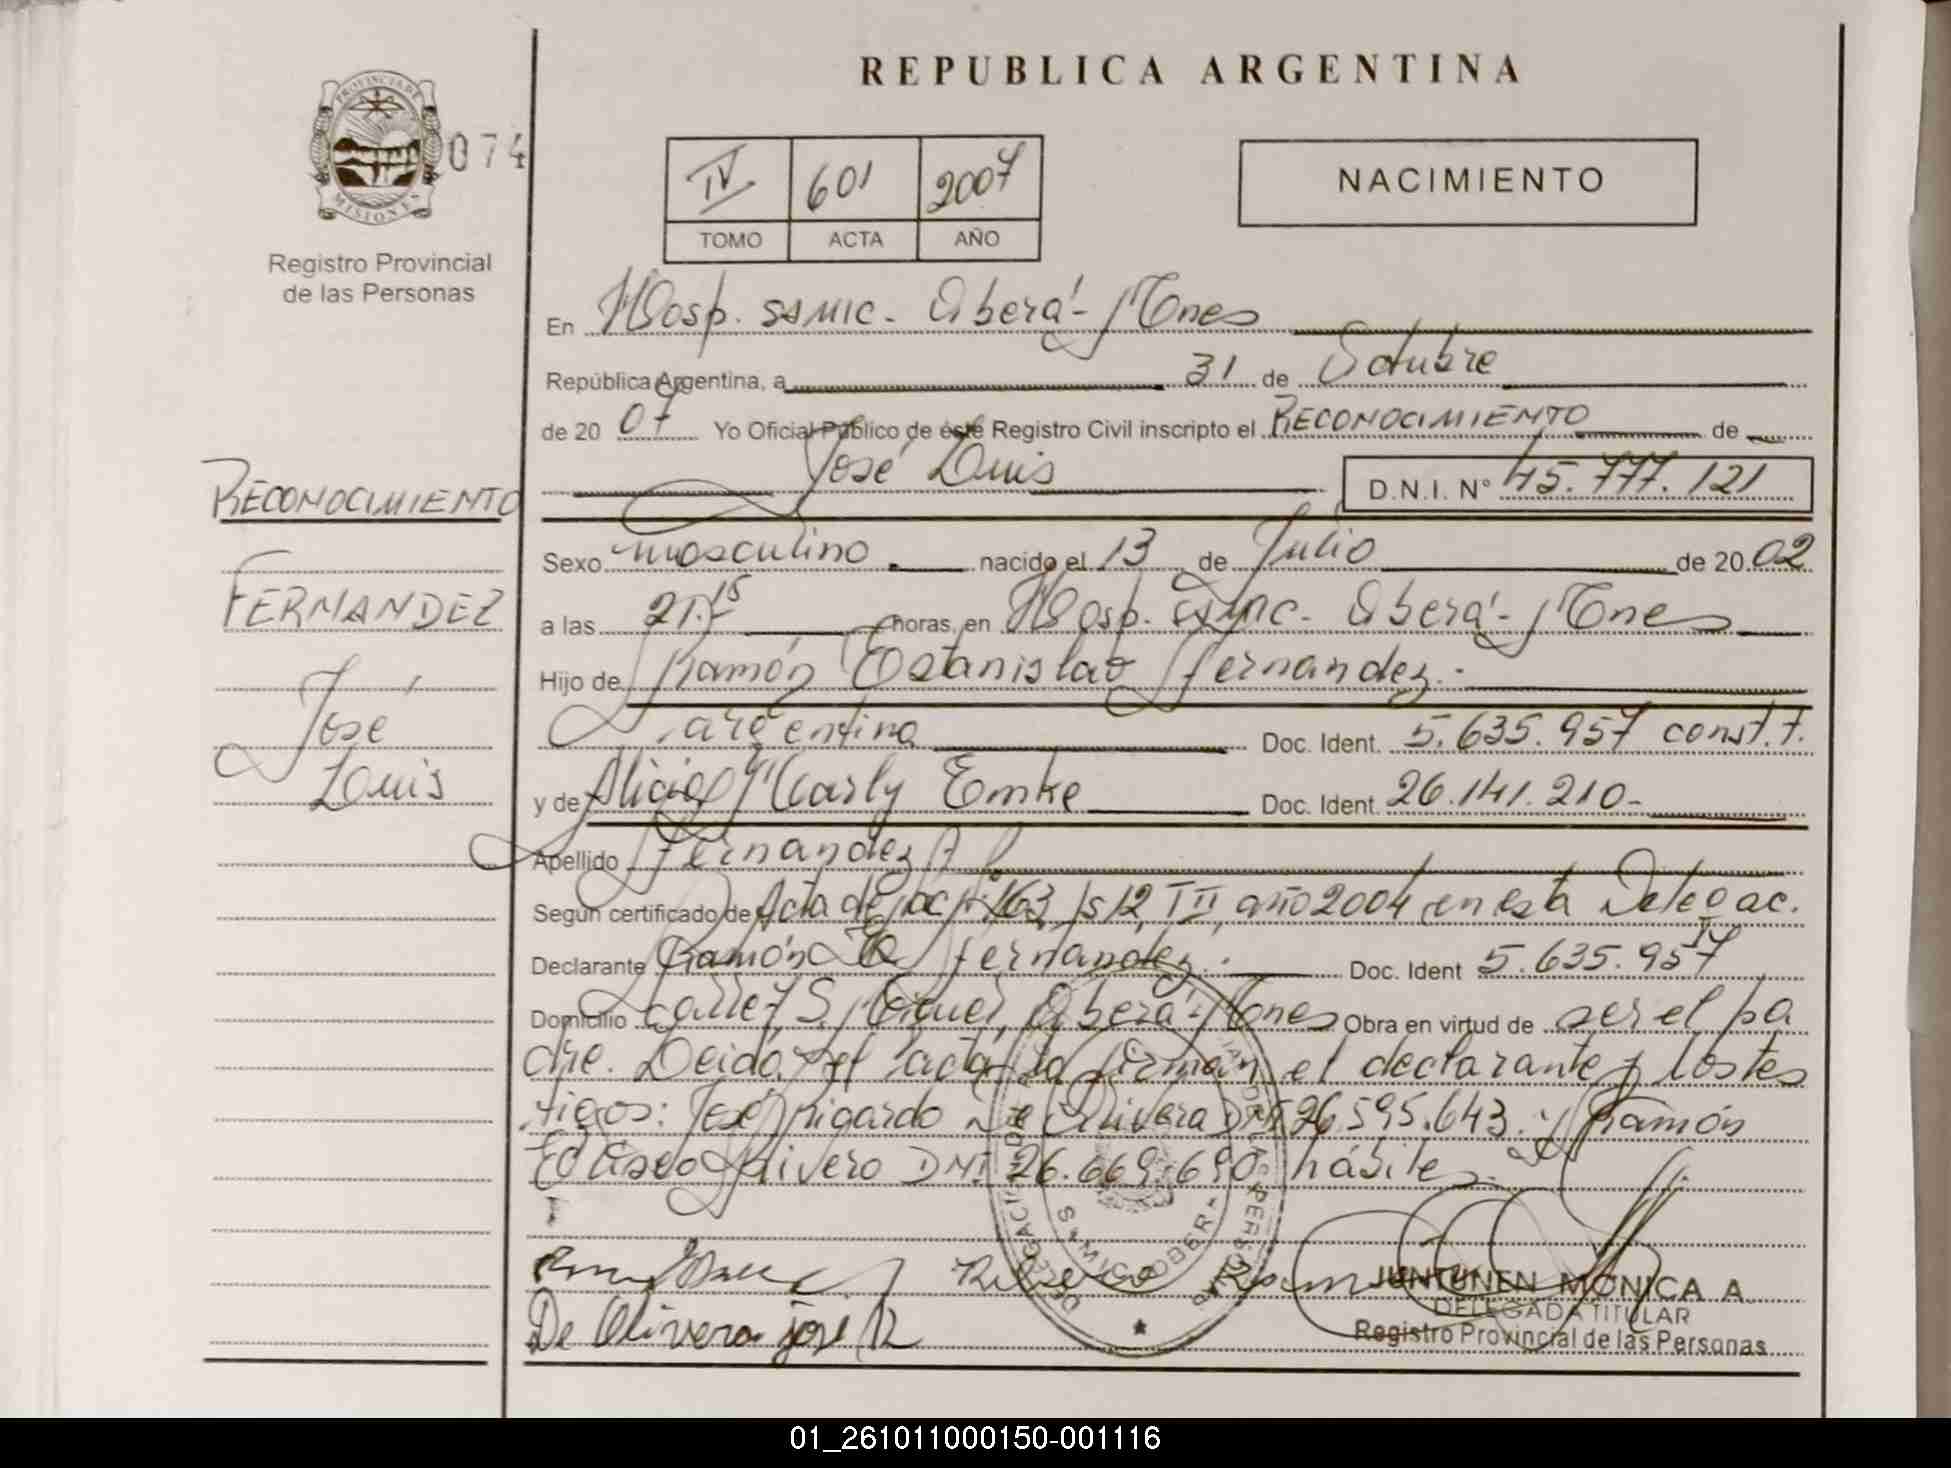 REPUBLICA ARGENTINA
PROVINCIA DE
MISIONES
074
Registro Provincial
de las Personas
IV 601 2007
TOMO ACTA AÑO
NACIMIENTO
En Hosp. SAMIC - Oberá - Mnes
República Argentina, a 31 de Octubre
de 2007 Yo Oficial Público de éste Registro Civil inscripto el RECONOCIMIENTO de
José Luis D.N.I. N° 45.777.121
RECONOCIMIENTO
FERNANDEZ
José
Luis
Sexo masculino nacido el 13 de Julio de 2002
a las 21.15 horas, en Hosp. SAMIC - Oberá - Mnes
Hijo de Ramón Estanislao Fernandez.-
argentino Doc. Ident. 5.635.957 const.f.
y de Alicia Marly Emke Doc. Ident. 26.141.210-
Apellido Fernandez
Según certificado de Acta de nac. 163, fs 12, T II, año 2004 en esta Delegac.
Declarante Ramón E. Fernandez.- Doc. Ident 5.635.957
Domicilio Calle S. Miguel, Oberá - Mnes Obra en virtud de ser el pa
dre. Leida el acta la firman el declarante y los tes
tigos: José Rigardo De Olivera DNI 26.595.643. y Ramón
Eliseo Rivero DNI 26.669.690 hábiles.
De Olivera jose R
JUNTUNEN MONICA A.
DELEGADA TITULAR
Registro Provincial de las Personas
01_261011000150-001116